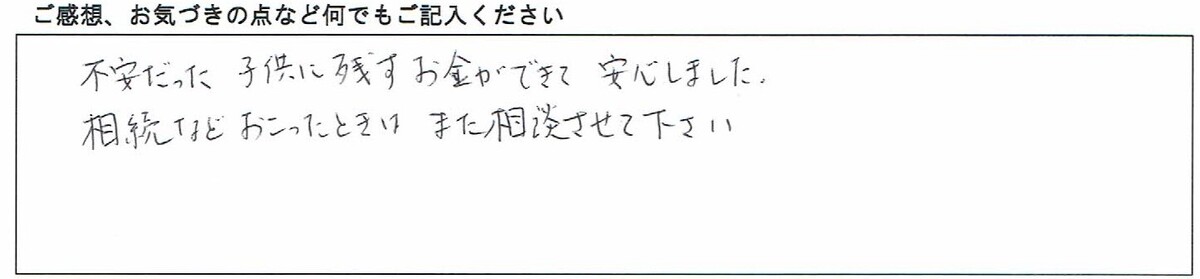 ご感想、お気づきの点など何でもご記入ください
不安だった 子供に残すお金ができて 安心しました.
相続など おこったときは また相談させて下さい